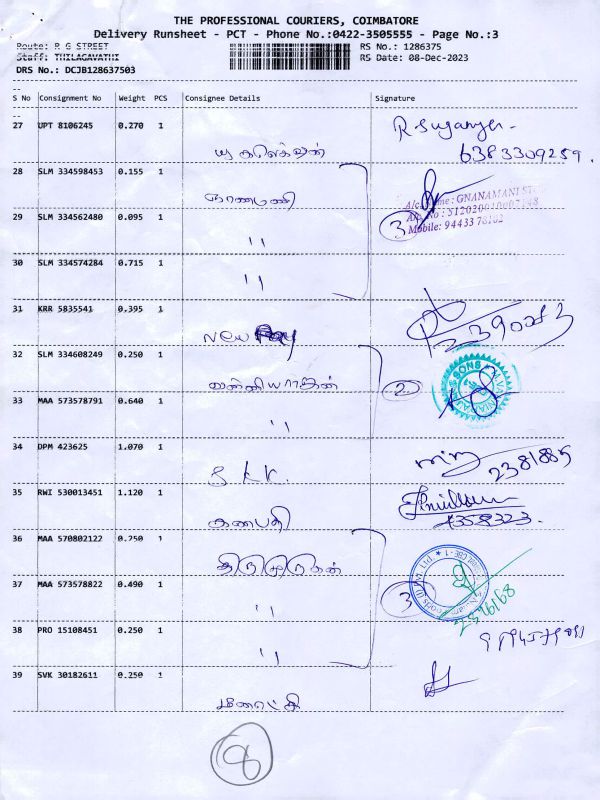 THE PROFESSIONAL COURIERS, COIMBATORE
Delivery Runsheet - PCT - Phone No.:0422-3505555 - Page No.:3
Route: R G STREET
RS No.: 1286375
Staff: THILAGAVATHI
RS Date: 08-Dec-2023
DRS No.: DCJB128637503
S No Consignment No Weight PCS Consignee Details Signature
27 UPT 8106245 0.270 1
6383309259.
28 SLM 334598453 0.155 1
ஞானமணி
A/c Name : GNANAMANI
Mobile: 94433 78102
29 SLM 334562480 0.095 1
" 3
30 SLM 334574284 0.715 1
"
31 KRR 5835541 0.395 1
New
32 SLM 334608249 0.250 1
வன்னியராஜன்
33 MAA 573578791 0.640 1
" 2
34 DPM 423625 1.070 1
S.K.K.
35 RWI 530013451 1.120 1
கணபதி
36 MAA 570802122 0.250 1
திருமுருகன்
37 MAA 573578822 0.490 1
" 3
38 PRO 15108451 0.250 1
"
39 SVK 30182611 0.250 1
8